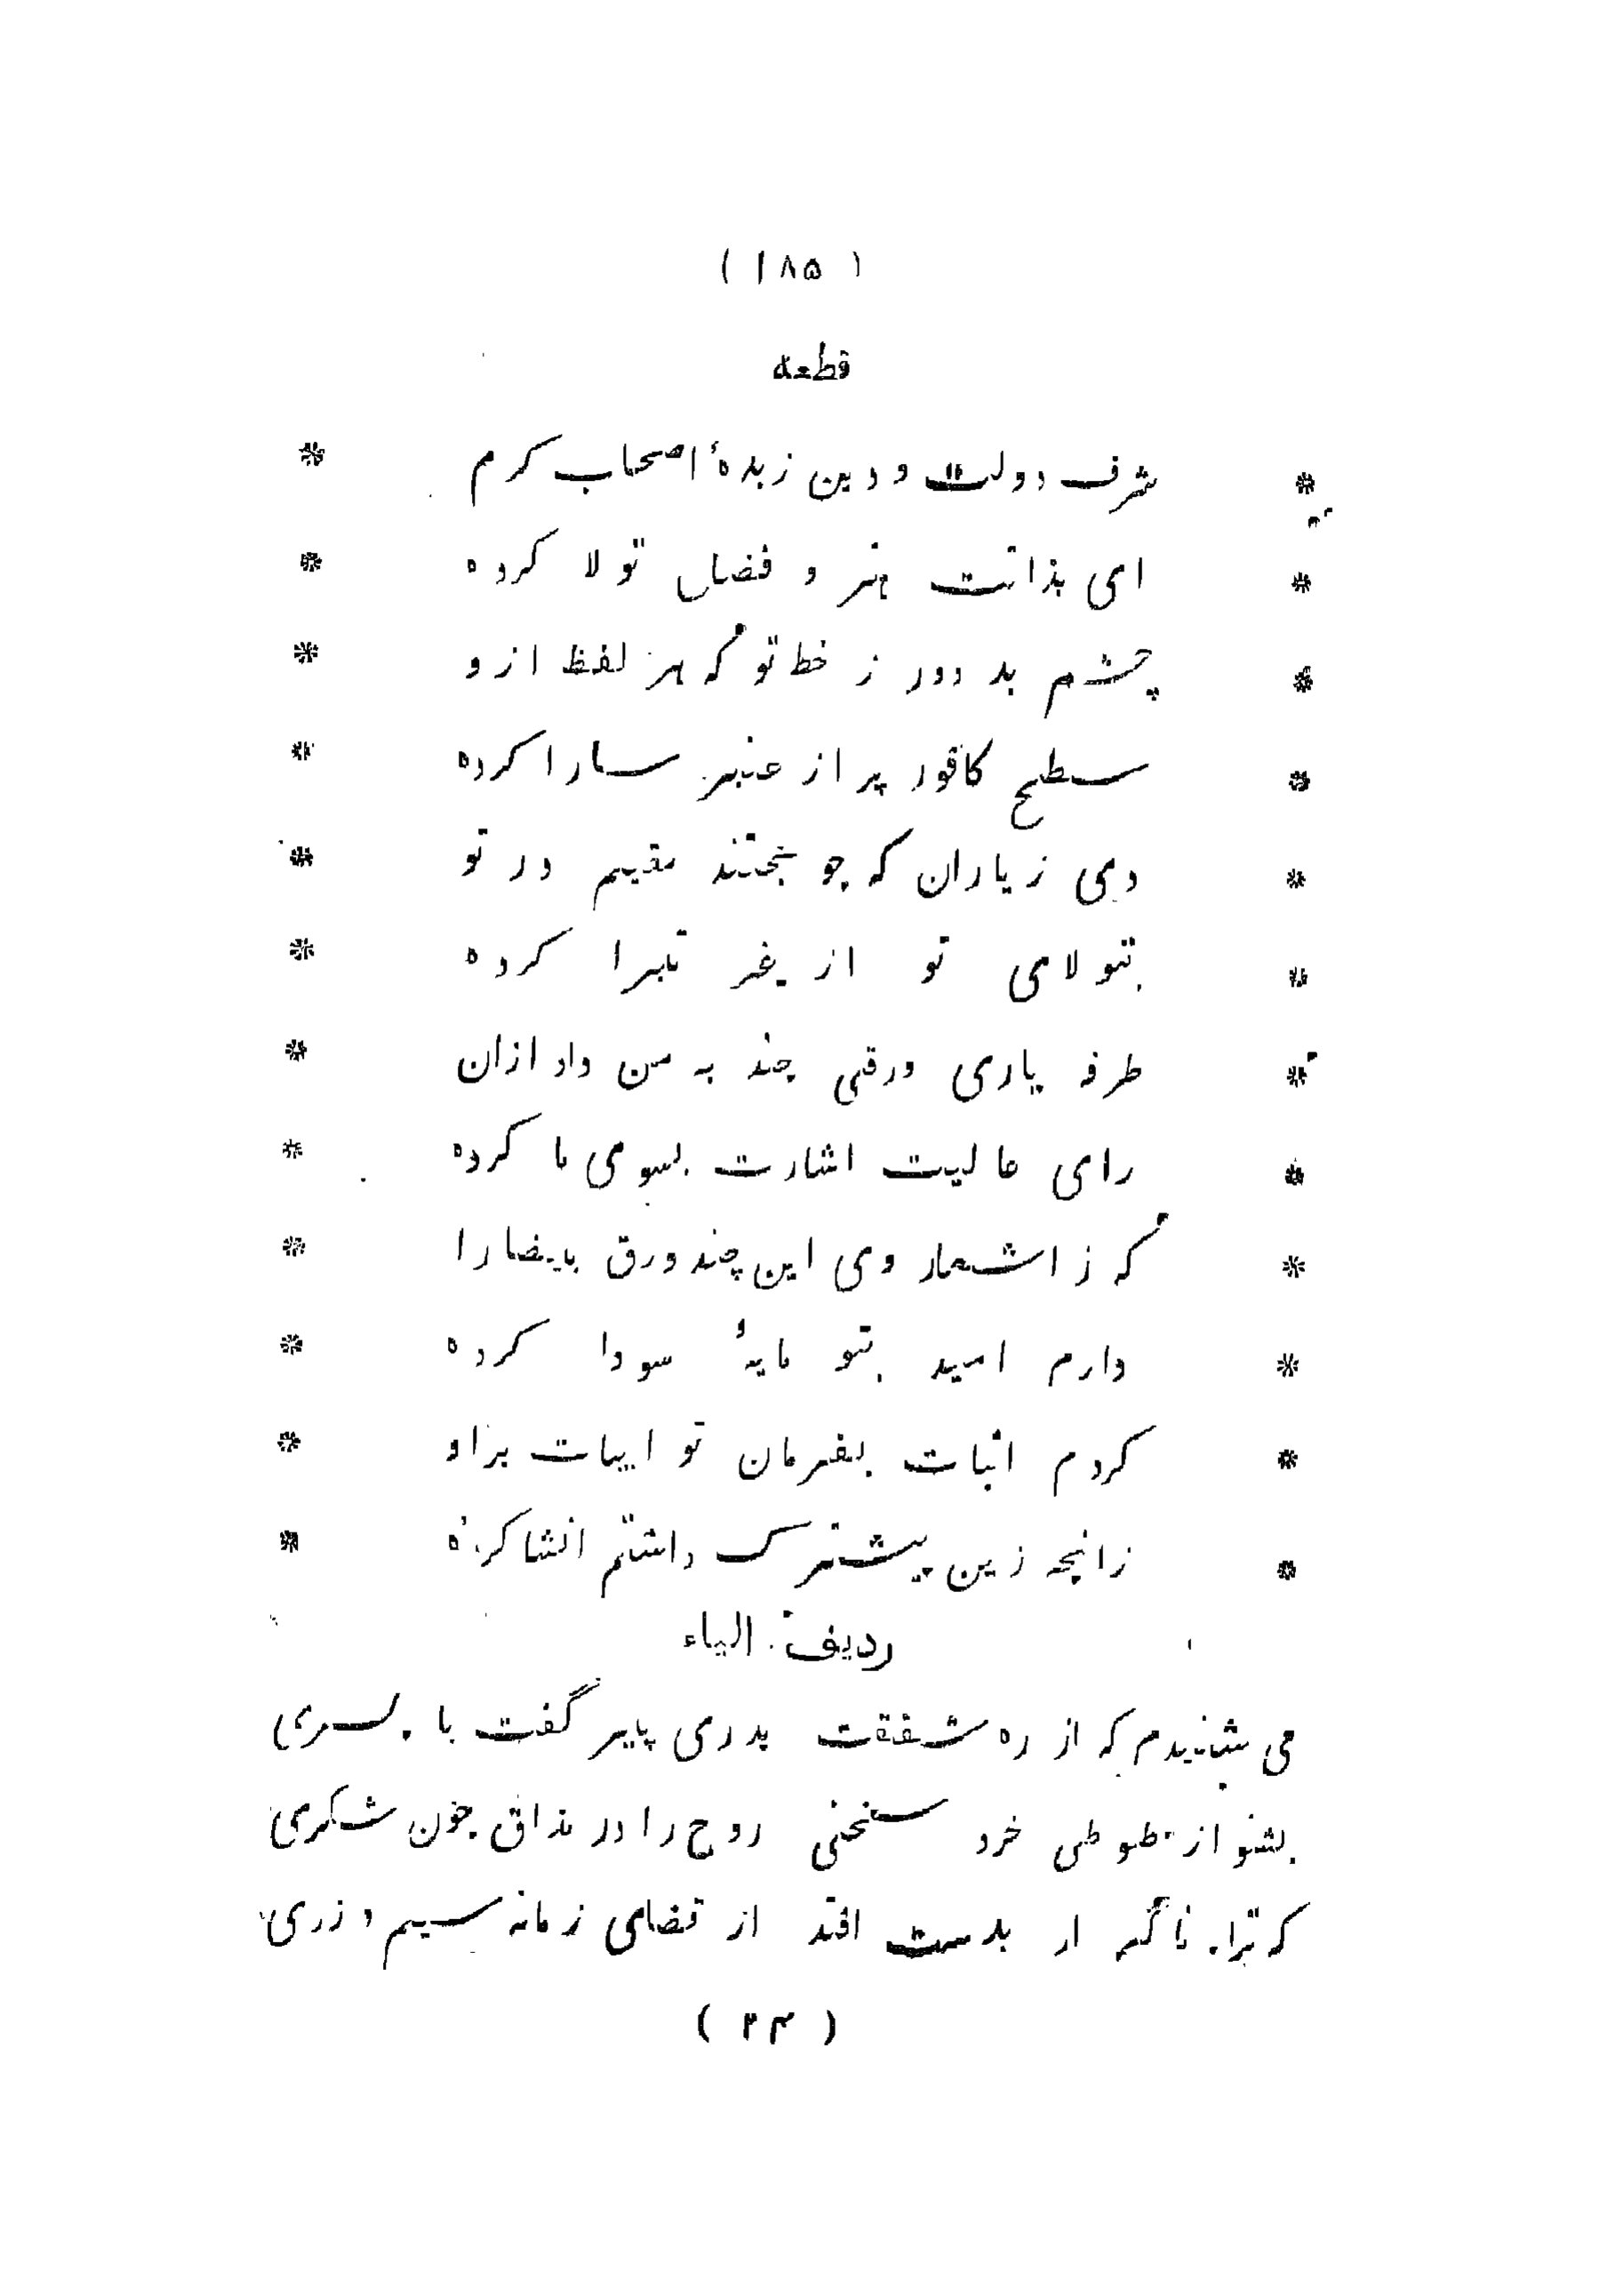 ( ۱۸۵ )
قطعه
* شرف دولت و دین زبدهٔ اصحاب کرم *
* ای بذاتت هنر و فضل تولا کرده *
* چشم بد دور ز خط تو که هر لفظ ازو *
* سطح کافور پر از عنبر سارا کرده *
* دی ز یاران که چو بختند مقیم در تو *
* بتولای تو از غیر تبرا کرده *
* طرفه یاری ورقی چند به من داد ازان *
* رای عالیت اشارت بسوی ما کرده *
* که ز اشعار وی این چند ورق بیضا را *
* دارم امید بتو مایهٔ سودا کرده *
* کردم اثبات بفرمان تو ابیات براو *
* زانچه زین پیشترک داشتم انشا کرده *
ردیف الیاء
می شنیدم که از ره شفقت پدری پیر گفت با پسری
بشنو از طوطی خرد سخنی روح را در مذاق چون شکری
که ترا ناگه ار بدست افتد از قضای زمانه سیم و زری
( ۲۴ )